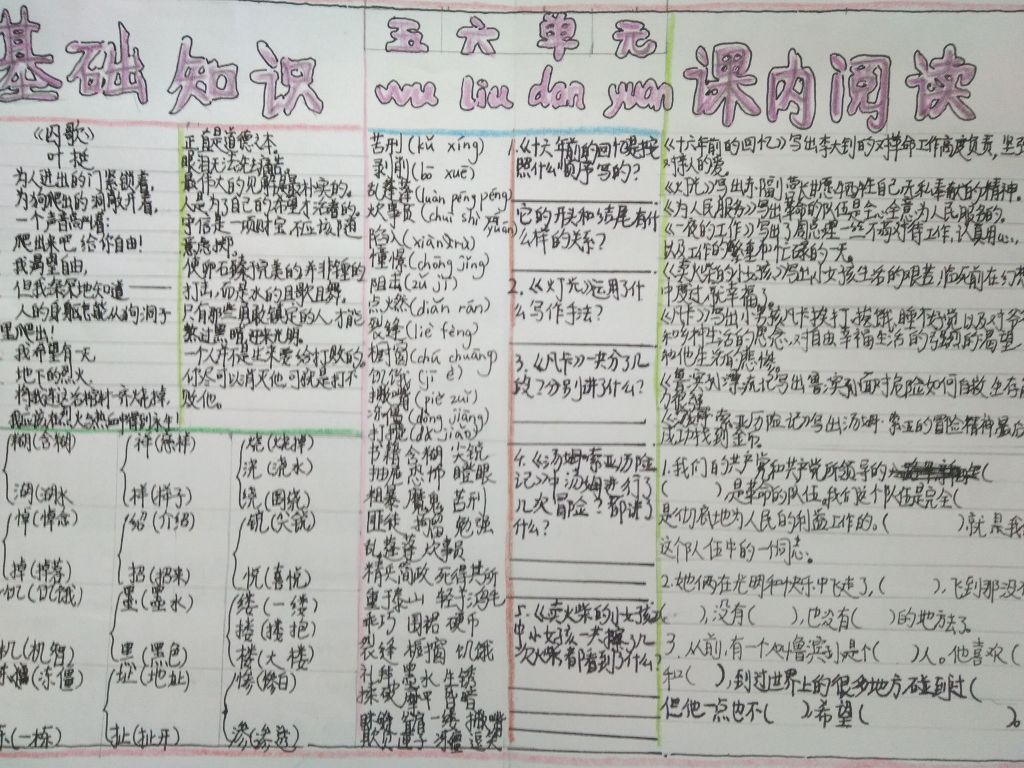 基础知识
五六单元
wu liu dan yuan
课内阅读
《囚歌》
叶挺
为人进出的门紧锁着,
为狗爬出的洞敞开着,
一个声音高叫着:
爬出来吧,给你自由!
我渴望自由,
但我深深地知道——
人的身躯怎能从狗洞子
里爬出!
我希望有一天
地下的烈火
将我连这活棺材一齐烧掉,
正直是道德之本
人是为了自己的希望才活着的。
守信是一项财宝,不应该随
意虚掷。
使卵石臻于完美的并非锤的
打击,而是水的且歌且舞。
只有那些勇敢镇定的人,才能
熬过黑暗,迎来光明。
一个人并不是生来要给打败的,
你尽可以消灭他,可就是打不
败他。
糊(含糊)
湖(湖水
悼(悼念)
掉(掉落)
饥(饥饿)
机(机智)
(冻僵)
(一栋)
祥(慈祥)
样(样子)
绍(介绍)
招(招来)
墨(墨水)
黑(黑色)
址(地址)
扯(扯开)
烧(烧掉)
浇(浇水)
绕(围绕)
锐(尖锐)
悦(喜悦)
缕(一缕)
搂(搂抱)
楼(大楼)
惨(惨白)
苦刑(kǔ xíng)
剥削(bō xuē)
乱蓬蓬(luàn pēng pēng)
炊事员(chuī shì yuán)
陷入(xiàn rù)
憧憬(chōng jǐng)
阻击(zǔ jī)
点燃(diǎn rán)
裂缝(liè fèng)
橱窗(chú chuāng)
饥饿(jī è)
撇嘴(piě zuǐ)
冻僵(dòng jiāng)
书籍 含糊 尖锐
拖 恐怖 瞪眼
粗暴 魔鬼 苦刑
匪徒 拘留 勉强
乱蓬蓬 炊事员
精兵简政 死得其所
重于泰山 轻于鸿毛
乖巧 围裙 硬币
裂缝 橱窗 饥饿
礼拜 墨水 生锈
1.《十六年前的回忆》是按
照什么顺序写的?
它的开头和结尾有什
么样的关系?
2.《灯光》运用了什
么写作手法?
3.《凡卡》一共分了几
段?分别讲了什么?
4.《汤姆·索亚历险
记》中汤姆进行了
几次冒险?都讲了
什么?
5.《卖火柴的小女孩》
中小女孩一共擦了几
次火柴都看到了什么?
《十六年前的回忆》写出李大钊的对革命工作高度负责,坚
对俩人的爱。
《灯光》写出郝副营长甘愿牺牲自己,无私奉献的精神。
《为人民服务》写出革命的队伍是全心全意为人民服务的。
《一夜的工作》写出了周总理一丝不苟对待工作,认真用心,
以及工作的繁重和忙碌的一天。
《卖火柴的小女孩》写出小女孩生活的艰苦,临死前在幻
中度过了幸福了。
《凡卡》写出小男孩凡卡挨打,挨饿,睡不好觉,以及对爷
和乡村生活的思念,对自由幸福生活的强烈的渴望
和他生活的悲惨。
《鲁宾孙漂流记》写出鲁宾孙面对危险如何自救,生存
《汤姆·索亚历险记》写出汤姆·索亚的冒险精神,最后
成功找到金币。
1.我们的共产党和共产党所领导的(
),是革命的队伍,我们这个队伍是完全(
是彻底地为人民的利益工作的。( )就是我
这个队伍中的一个同志。
2.她俩在光明和快乐中飞走了,( ),飞到那没
),没有( ),也没有( )的地方了。
3.从前,有一个叫鲁宾孙是个( )人。他喜欢(
和( ),到过世界上的很多地方,碰到过(
但他一点也不( ),希望( )。